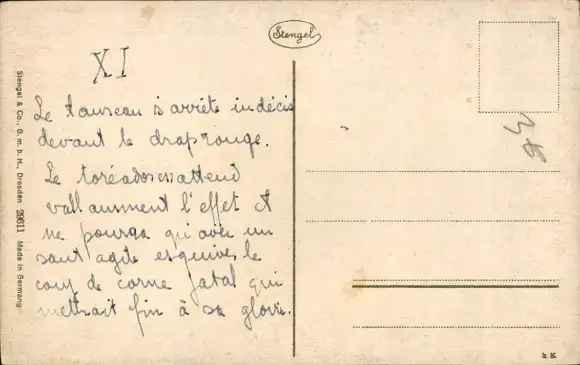 Stengel
XI
Le taureau s'arrête indécis
devant le drap rouge.
Le toréador en attend
vaillamment l'effet et
ne pourra qu'avec un
saut agile esquiver le
coup de corne fatal qui
mettrait fin à sa gloire.
Stengel & Co., G. m. b. H., Dresden 29611 Made in Germany
k K